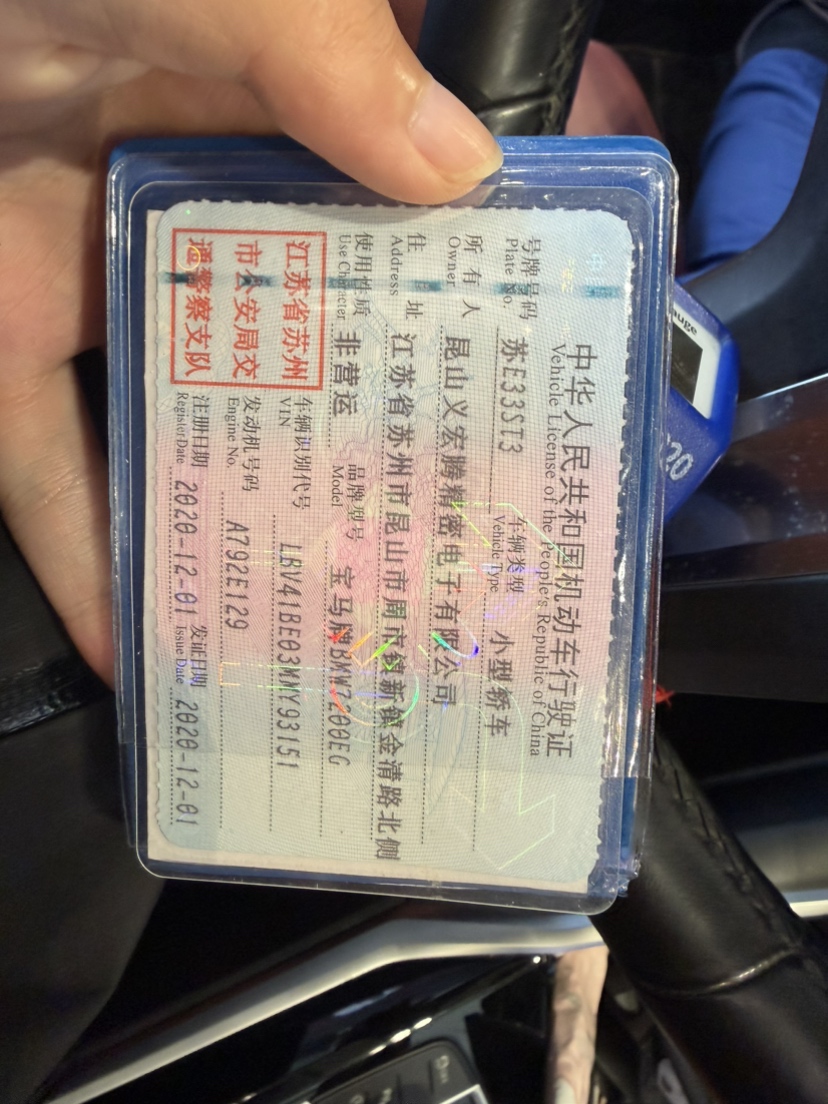 中华人民共和国机动车行驶证
Vehicle License of the People's Republic of China
号牌号码 苏E33ST3 车辆类型 小型轿车
Plate No. Vehicle Type
所有人 昆山义宏腾精密电子有限公司
Owner
住址 江苏省苏州市昆山市周市镇新镇金清路北侧
Address
使用性质 非营运 品牌型号 宝马牌BMW7200EG
Use Character Model
江苏省苏州
市公安局交
通警察支队
车辆识别代号 LBV41BE03MMY93151
VIN
发动机号码 A792E129
Engine No.
注册日期 2020-12-01 发证日期 2020-12-01
Register Date Issue Date
auge
20